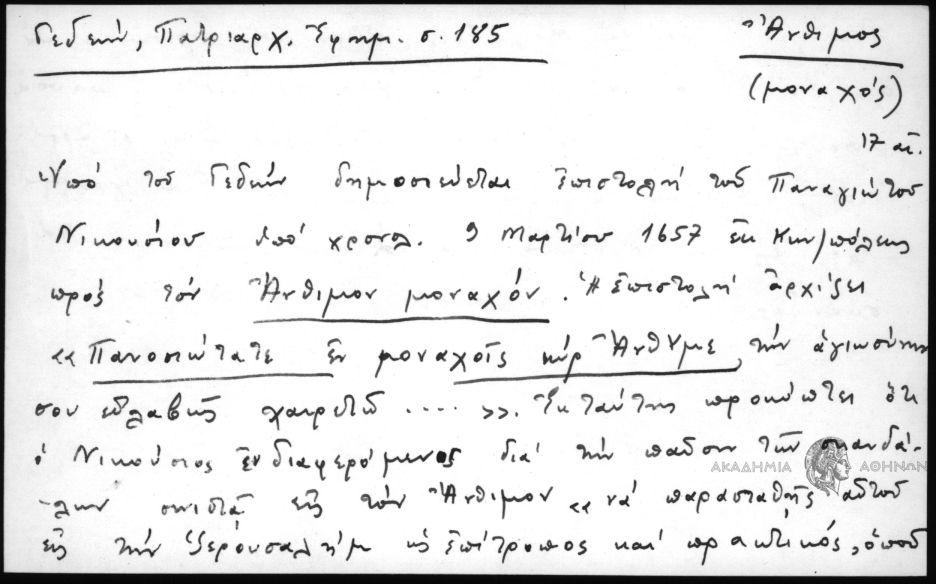 Γεδεών, Πατριαρχ. Ἐφημ. σ. 185
Ἄνθιμος
(μοναχός)
17 αἰ.
Ὑπό τοῦ Γεδεών δημοσιεύεται ἐπιστολή τοῦ Παναγιώτου
Νικουσίου ὑπό χρονολ. 9 Μαρτίου 1657 ἐκ Κων/πόλεως
πρός τόν Ἄνθιμον μοναχόν. Ἡ ἐπιστολή ἀρχίζει
«Πανοσιώτατε ἐν μοναχοῖς κύρ Ἄνθυμε, τήν ἁγιωσύνην
σου εὐλαβῶς χαιρετῶ .... ». Ἐκ ταύτης προκύπτει ὅτι
ὁ Νικούσιος ἐνδιαφερόμενος διά τήν παῦσιν τῶν σκανδά-
-λων συνιστᾶ εἰς τόν Ἄνθιμον «νά παρασταθῆς αὐτοῦ
εἰς τήν Ἱερουσαλήμ ὡς ἐπίτροπος καί πρακτικός, ὁποῦ
ΑΚΑΔΗΜΙΑ ΑΘΗΝΩΝ